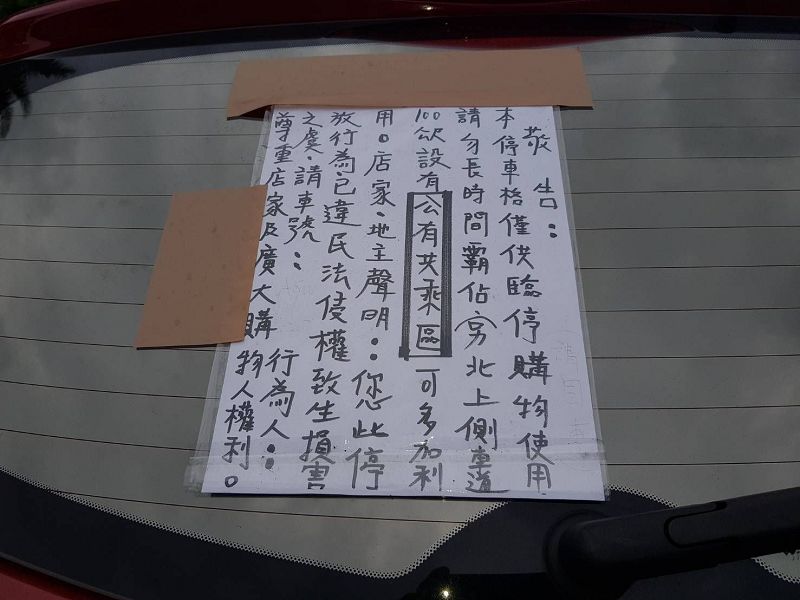 敬告：
本停車格僅供臨停購物使用
請勿長時間霸佔 北上側車道
100 設有公有共乘區可多加利
用。店家、地主聲明：您此停
放行為已違民法侵權致生損害
之虞、請車號： 行為人：
尊重店家及廣大購物人權利。